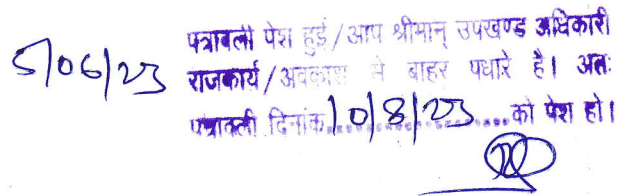 पत्रावली पेश हुई/आप श्रीमान् उपखण्ड अधिकारी
5/06/23 राजकार्य/अवकाश से बाहर पधारे है। अतः
पत्रावली दिनांक 10/8/23 को पेश हो।